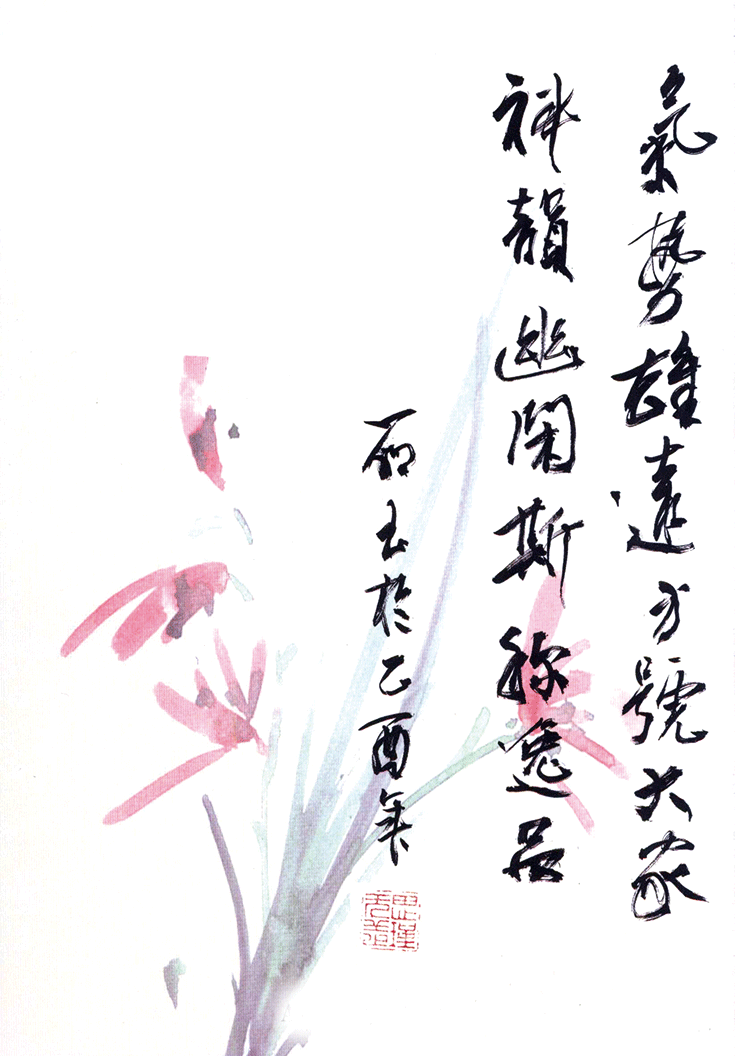 氣勢雄遠方號大家
神韻幽閑斯稱逸品
书於乙酉年